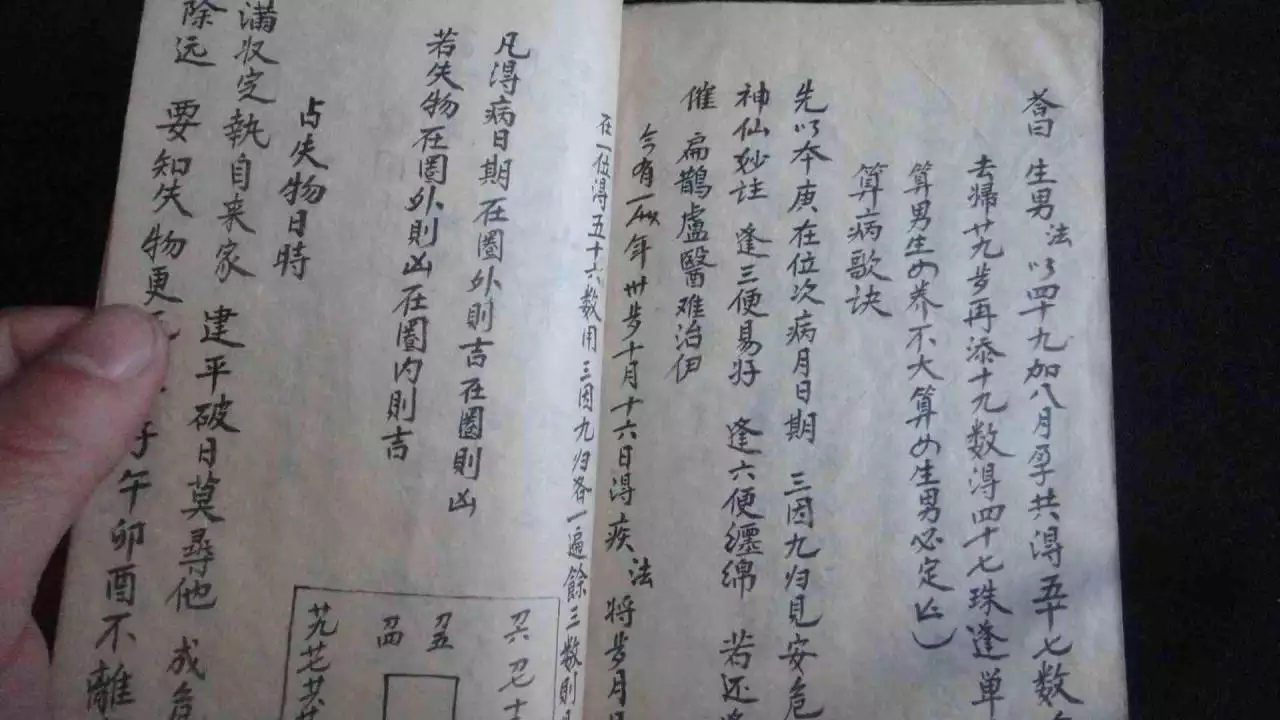 答曰 生男法 以四十九加八月孕共得五十七数
去帰廿九步再添十九数得四十七珠逢单
算男生女养不大算女生男必定亡
算病歌诀
先以本庚在位次病月日期 三因九归見安危
神仙妙註 逢三便易好 逢六便缠绵 若还
催 扁鵲盧醫难治伊
今有一人年卅步十月十六日得疾 法 将步月日
在一位得五十六数用三因九归各一遍餘三数則
凡得病日期在圈外則吉在圈則凶
若失物在圈外則凶在圈内則吉
占失物日時
满收定執自来家 建平破日莫尋他 成危
除远 要知失物更 子午卯酉不離
刀六 刀七
刀五
刀四
廿九 廿七 廿六